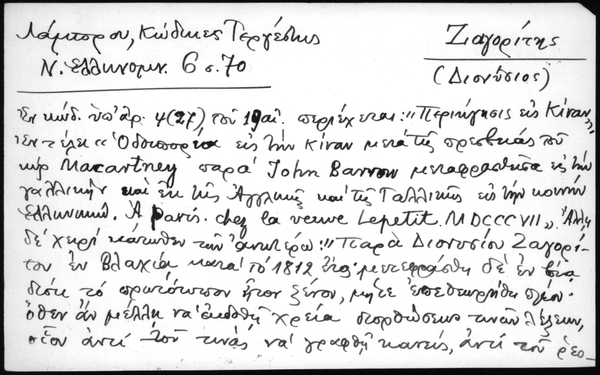 Λάμπρου, Κώδικες Τεργέστης
Ν. Ἑλληνομν. 6 σ. 70
Ζαγορίτης
(Διονύσιος)
Ἐν κώδ. ὑπ' ἀρ. 4(27) τοῦ 19 αἰ. περιέχεται: "Περιήγησις εἰς Κίναν",
Ἐν τέλει "Ὁδοιπορία εἰς τὴν Κίναν μετὰ τῆς πρεσβείας τοῦ
κὺρ Macartney παρὰ John Barrow μεταφρασθεῖσα εἰς τὴν
γαλλικὴν καὶ ἐκ τῆς Ἀγγλικῆς καὶ τῆς Γαλλικῆς εἰς τὴν κοινὴν
Ἑλληνικήν. A paris. chez la veuve Lepetit. MDCCCVII». Ἄλλη
δὲ χεὶρ κάτωθεν τῶν ἀνωτέρω: "Παρὰ Διονυσίου Ζαγορί-
του ἐν Βλαχίᾳ κατὰ τὸ 1812 ἔτος· μετεφράσθη δὲ ἐν βίᾳ
διότι τὸ πρωτότυπον ἦτον ξένον, μήτε ἐπεθεωρήθη πλέον·
ὅθεν ἂν μέλλῃ νὰ ἐκδοθῇ χρεία διορθώσεως τινῶν λέξεων,
οἷον ἀντὶ τοῦ τινὰς νὰ γραφῇ κανείς, ἀντὶ τοῦ ῥεο-